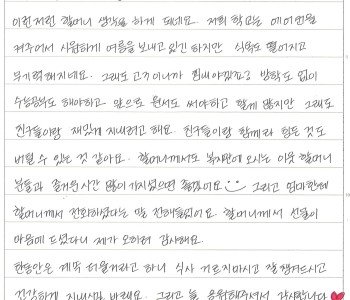 이런저런 할머니 생각을 하게 되네요. 저희 학교는 에어컨을
켜주어서 시원하게 여름을 보내고 있긴 하지만 식욕도 떨어지고
무기력해지네요. 그래도 고3이니까 힘내야겠죠? 방학도 없이
수능공부도 해야하고 앞으로 원서도 써야하고 할게 많지만 그래도
친구들이랑 재밌게 지내려고 해요. 친구들이랑 함께라 힘든 것도
버틸 수 있는 것 같아요. 할머니께서도 복지관에 오시는 이웃 할머니
분들과 즐거운 시간 많이 가지셨으면 좋겠어요 그리고 엄마한테
할머니께서 전화하셨다는 말 전해들었어요. 할머니께서 선물이
마음에 드셨다니 제가 오히려 감사해요.
한동안은 계속 더울거라고 하니 식사 거르지마시고 잘 챙겨드시고
건강하게 지내시길 바래요. 그리고 늘 응원해주셔서 감사합니다